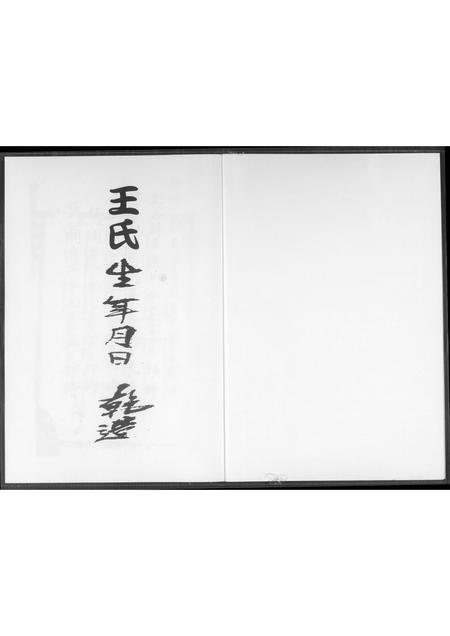 王氏生年月日